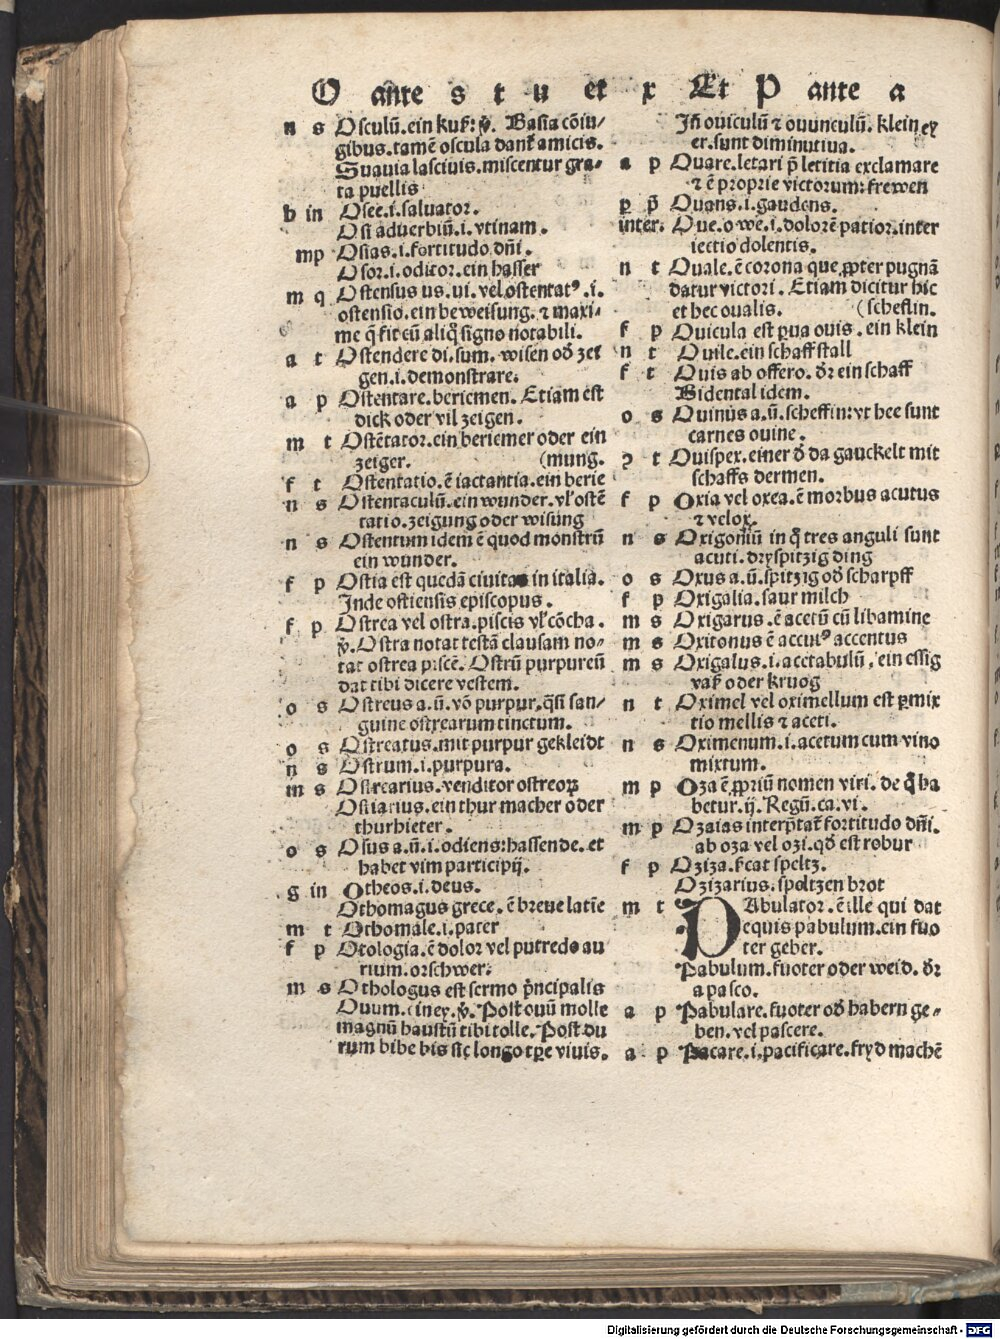 O ante s t u et x Et P ante a
n s Osculū.ein kuß: ꝟ. Basia cōiu/
gibus.tamē oscula dant amicis.
Suauia lasciuis.miscentur gra-
ta puellis
b in Osee.i.saluator.
Osi aduerbiū.i.vtinam.
mp Osias.i.fortitudo dñi.
Osor.i.oditor.ein hasser
m q Ostensus us.ui.vel ostentatꝰ.i.
ostensio.ein beweisung.⁊ maxi-
me q̄ fit cū aliq̊ signo notabili.
a t Ostendere di.sum.wisen oď zei
gen.i.demonstrare.
a p Ostentare.beriemen.Etiam est
dick oder vil zeigen.
m t Ostētator.ein beriemer oder ein
zeiger. (mung.
f t Ostentatio.ē iactantia.ein berie
n s Ostentaculū.ein wunder.vł ostē
tatio.zeigung oder wisung
n s Ostentum idem ē quod monstrū
ein wunder.
f p Ostia est quedā ciuitas in italia.
Inde ostiensis episcopus.
f p Ostrea vel ostra.piscis vł cōcha.
ꝟ.Ostra notat testā clausam no-
tat ostrea piscē.Ostrū purpureū
dat tibi dicere vestem.
o s Ostreus a.ū.vō purpur.q̄si san/
guine ostrearum tinctum.
o s Ostreatus.mit purpur gekleidt
n s Ostrum.i.purpura.
m s Ostrearius.venditor ostreoꝝ
Ostiarius.ein thur macher oder
thurhieter.
o s Osus a.ū.i.odiens:hassende.et
habet vim participij.
g in Otheos.i.deus.
Othomagus grece.ē breue latīe
m t Othomale.i.pater
f p Otologia.ē dolor vel putredo au
rium.orschwer.
m s Othologus est sermo p̄ncipalis
Ouum.ein ey.ꝟ.Post ouū molle
magnū haustū tibi tolle.Post du
rum bibe bis sic longo tꝑe viuis.
Jñ ouiculū ⁊ ouunculū.klein ey
er.sunt diminutiua.
a p Ouare.letari p̄ letitia exclamare
⁊ ē proprie victorum:frewen
ꝑ p̄ Ouans.i.gaudens.
inter. Oue.o we.i.dolorē patior.inter
iectio dolentis.
n t Ouale.ē corona que ꝓpter pugnā
datur victori.Etiam dicitur hic
et hec oualis. (scheflin.
f p Ouicula est ꝑua ouis.ein klein
n t Ouile.ein schaffstall
f t Ouis ab offero.ďr ein schaff
Bidental idem.
o s Ouinus a.ū.scheffin:vt hee sunt
carnes ouine.
ꝯ t Ouispex.einer ď da gauckelt mit
schaffs dermen.
f p Oxia vel oxea.ē morbus acutus
⁊ velox.
n s Oxigoniū in q̊ tres anguli sunt
acuti.dryspitzig ding
o s Oxus a.ū.spitzig oď scharpff
f p Oxigalia.saur milch
m s Oxigarus.ē acetū cū libamine
m s Oxitonus ē accutꝰ accentus
m s Oxigalus.i.acetabulū.ein essig
vaß oder kruog
n t Oximel vel oximellum est ꝑmix
tio mellis ⁊ aceti.
n s Oximenum.i.acetum cum vino
mixtum.
m p Oza ē ꝓpriū nomen viri.de q̊ ha
betur.ij.Regū.ca.vi.
m p Ozaias interp̄tat̄ fortitudo dñi.
ab oza vel ozi.qď est robur
f p Oziza.ficat speltz.
Ozizarius.speltzen brot
m t PAbulator.ē ille qui dat
equis pabulum.ein fuo
ter geber.
Pabulum.fuoter oder weid.ďr
a pasco.
a p Pabulare.fuoter oď habern ge-
ben.vel pascere.
a p Pacare.i.pacificare.fryd machē
Digitalisierung gefördert durch die Deutsche Forschungsgemeinschaft - DFG